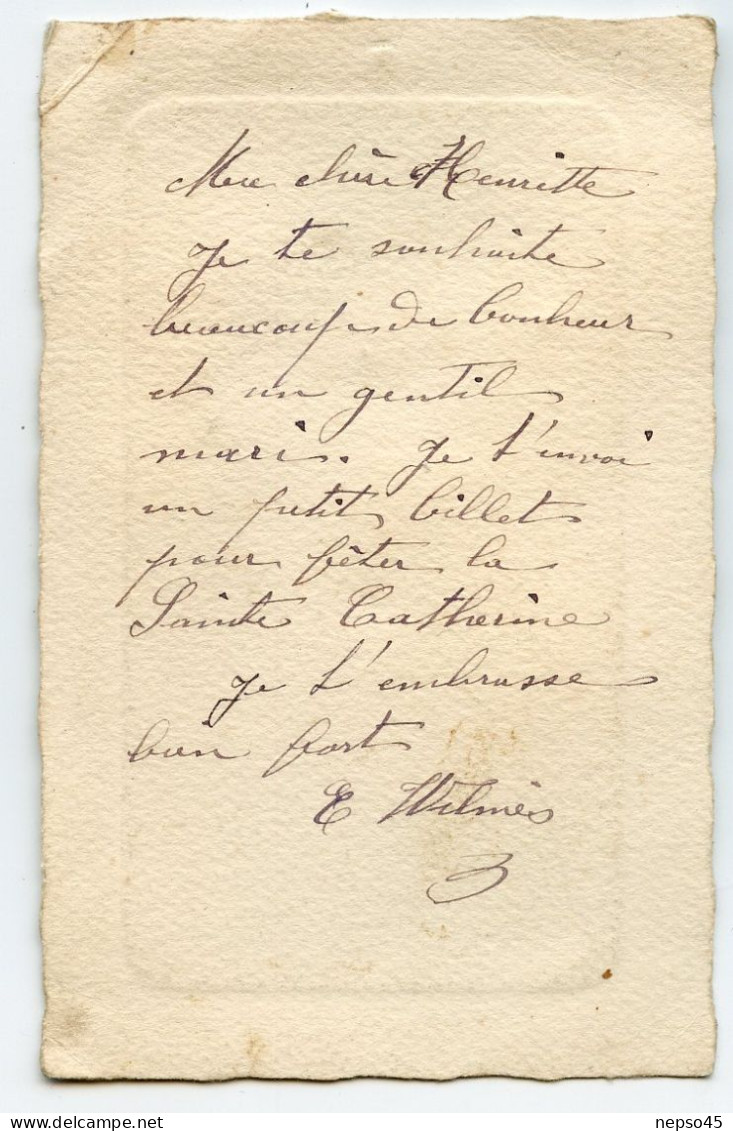 Ma chère Henriette
je te souhaite
beaucoup de bonheur
et un gentil
mari. Je t'envoi
un petit billet
pour fêter la
Sainte Catherine
je t'embrasse
bien fort
E Wilmès
nepso45